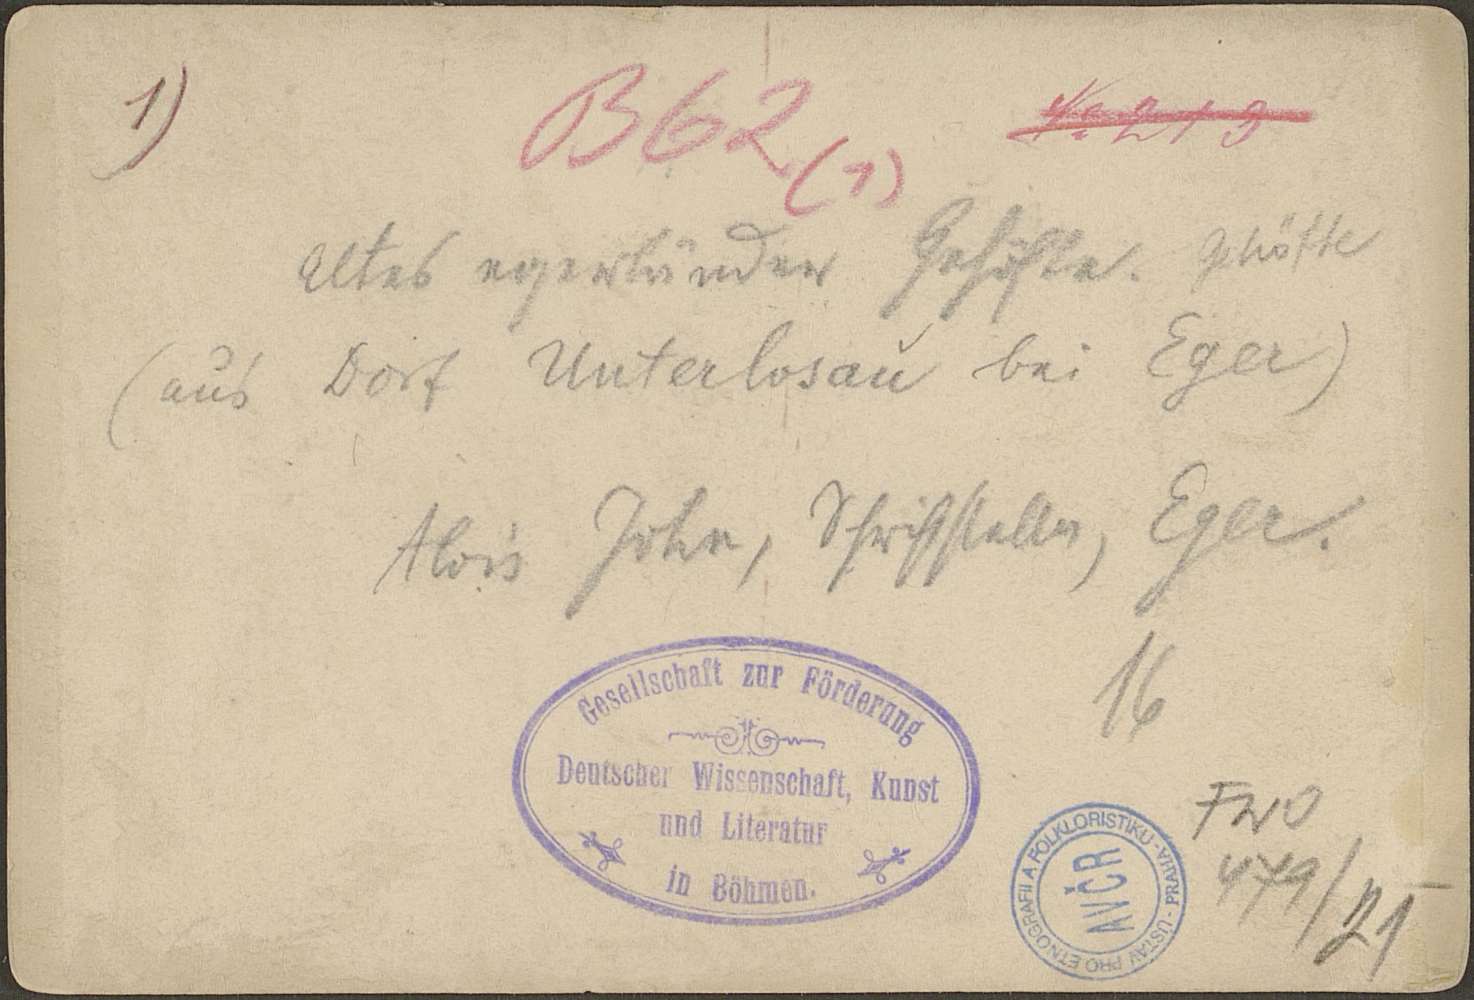 1)
B62 (1)
No 213
Altes egerländer Gehöfte. Gehöfte
(aus Dorf Unterlosau bei Eger)
Alois John, Schriftsteller, Eger.
16
Gesellschaft zur Förderung
Deutscher Wissenschaft, Kunst
und Literatur
in Böhmen.
ÚSTAV PRO ETNOGRAFII A FOLKLORISTIKU - PRAHA -
AVČR
479/21